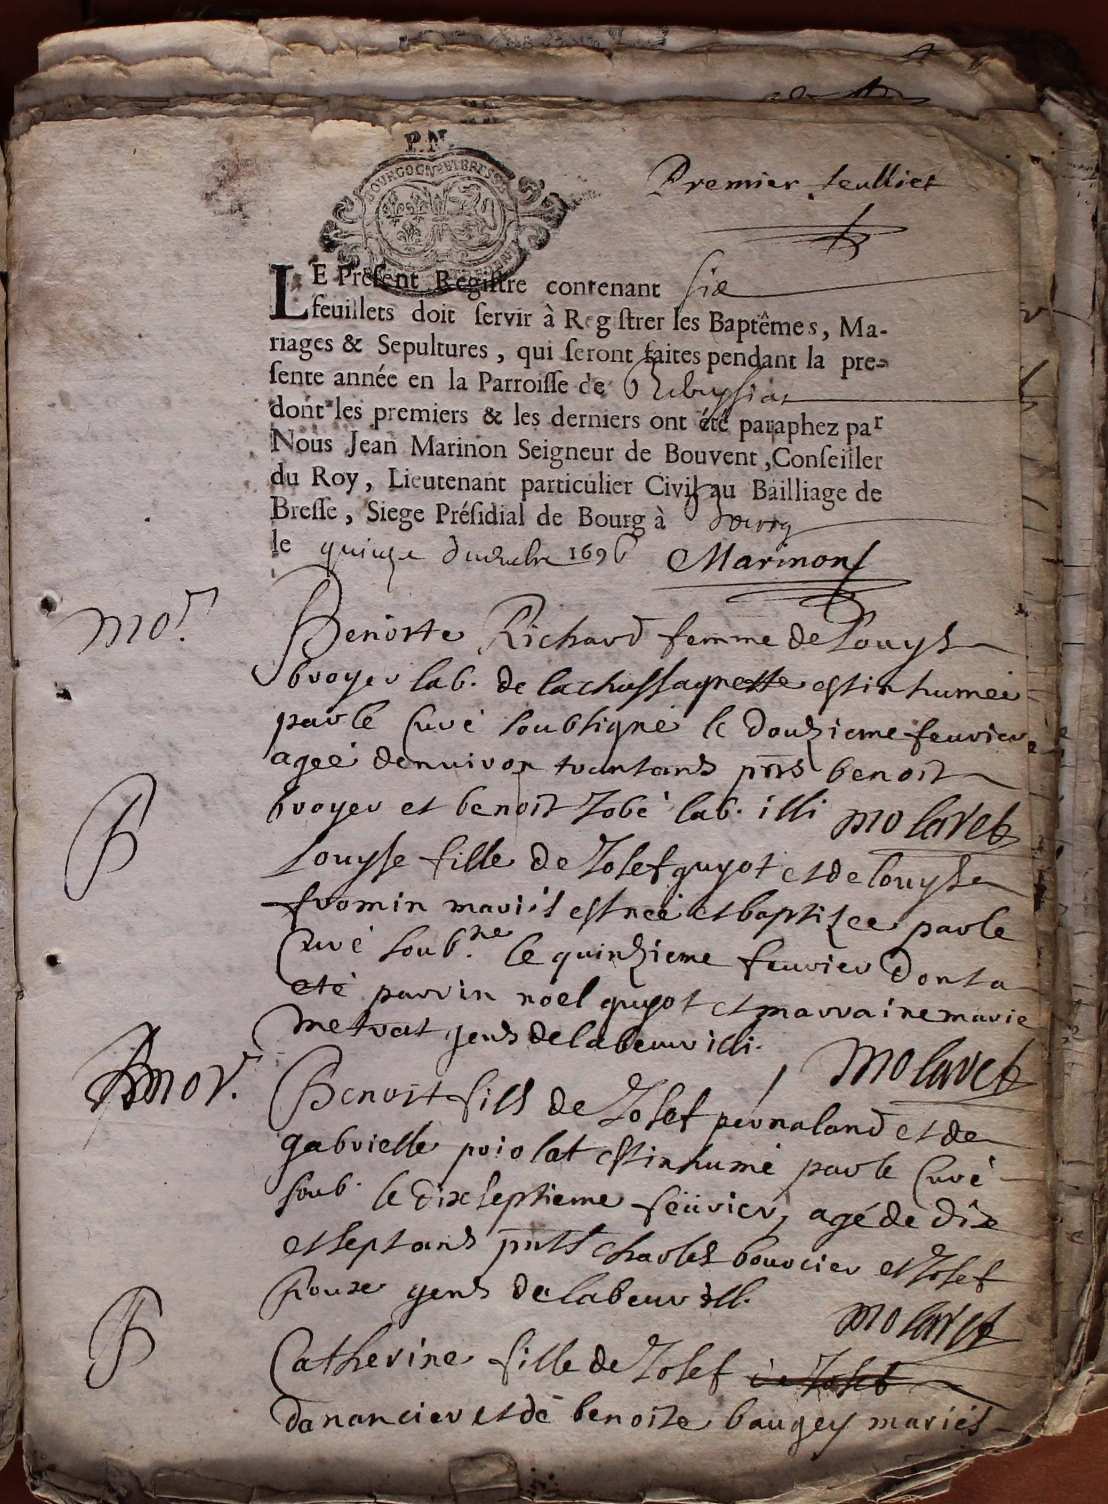 P.N.
BOURGOGNE ET BRESSE
Premier feulliet
LE Present Registre contenant six
feuillets doit servir à Registrer les Baptêmes, Ma-
riages & Sepultures, qui seront faites pendant la pre-
sente année en la Parroisse de
dont les premiers & les derniers ont été paraphez par
Nous Jean Marinon Seigneur de Bouvent, Conseiller
du Roy, Lieutenant particulier Civil au Bailliage de
Bresse, Siege Présidial de Bourg à Bourg
le quinze 1696 Marinon
mor.
Benoite Richard femme de Louys
broyer lab. de lachassagnette est inhumeé
par le Curé soubsigné le douzieme feuvier
ageé denuiron trantans pnts benoit
broyer et benoit Jobé lab. illi molaret
B
Louyse fille de Josef guyot et de louyse
fromin mariés est neé et baptizeé par le
Curé soub.ne le quinzieme feuvier dont a
eté parrin noel guyot et marraine marie
metrat gens de labeur illi. molaret
mor.
Benoit fils de Josef pernaland et de
gabrielle poiolat est inhumé par le Curé
soub. le dixseptieme feuvier, agé de dix
et sept ans pnts charles bourcier et Josef
gens de labeur ill. molaret
B
Catherine fille de Josef de Josef
danancier et dé benoite baugey mariés